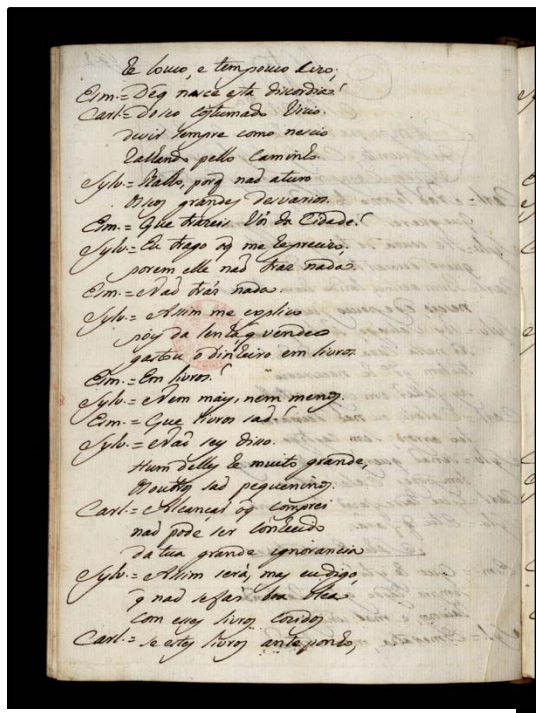 he louco, e tem pouco sizo;
Esm.= Deq nasce esta discordia?
Carl.= Do seo costumado vicio.
de vir sempre como nescio
Ralhando pello caminho.
Sylv.= Ralho, porq naõ aturo
Os seos grandes desvarios.
Esm.= Que trazeis vós da Cidade?
Sylv.= Eu trago oq me he precizo,
porem elle naõ traz nada.
Esm.= Naõ trás nada.
Sylv.= Assim me explico
pois da lenha q vendeo
gastou o dinheiro em livros.
Esm.= Em livros?
Sylv.= Nem mais, nem menos.
Esm.= Que livros saõ?
Sylv.= Naõ sey disso.
Hum delles he muito grande,
Os outros saõ pequeninos.
Carl.= Alcançar oq comprei
naõ pode ser conhecido
da tua grande ignorancia
Sylv.= Assim será, mas eu digo
q naõ se faz boa olea
com esses livros cozidos
Carl.= se estes livros ante ponho,